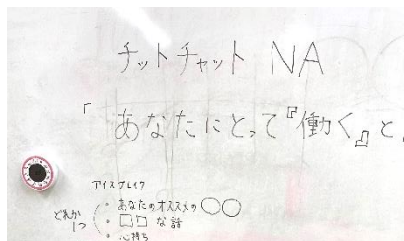 チットチャット NA
「あなたにとって『働く』と
アイスブレイク
どれか1つ
・あなたのオススメの○○
・□□な話
・心持ち